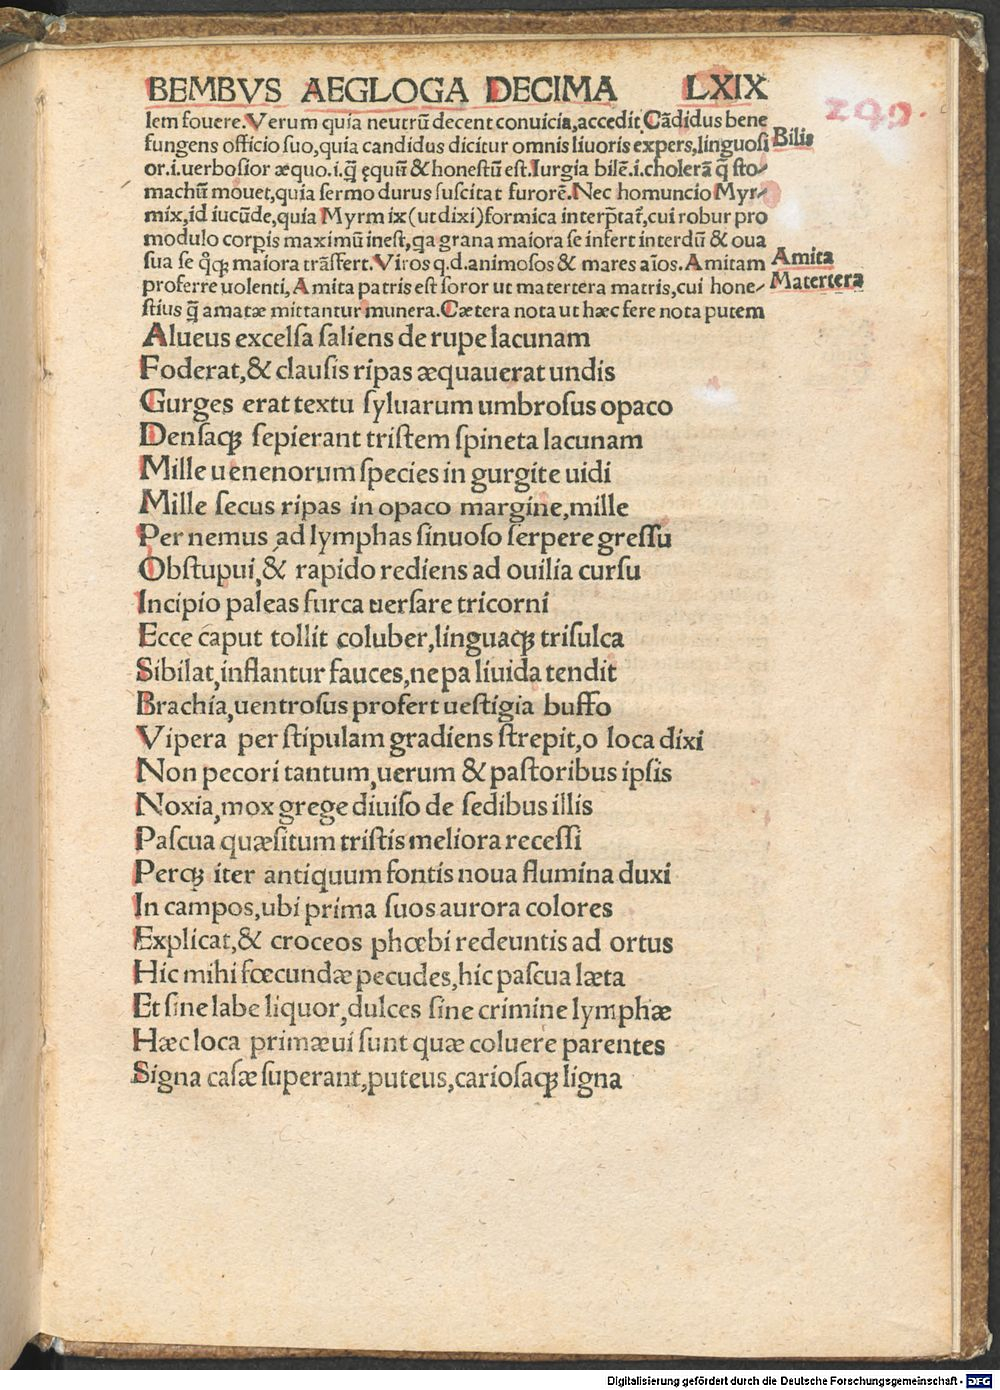 BEMBVS AEGLOGA DECIMA LXIX
240.
lem fouere.Verum quia neutrũ decent conuicia,accedit Cãdidus bene
fungens officio suo,quia candidus dicitur omnis liuoris expers,linguosi
or.i.uerbosior æquo.i.q̃ ęquũ & honestũ est.Iurgia bilẽ.i.cholerã q̃ sto-
machũ mouet,quia sermo durus suscitat furorẽ.Nec homuncio Myr-
mix,id iucũde,quia Myrmix(ut dixi)formica interp̃tat᷑,cui robur pro
modulo corꝑis maximũ inest,qa grana maiora se infert interdũ & oua
sua se q̊qꝫ maiora trãsfert.Viros q.d.animosos & mares aĩos.Amitam
proferre uolenti,Amita patris est soror ut matertera matris,cui hone-
stius q̃ amatæ mittantur munera.Cætera nota ut hæc fere nota putem
Bilis
Amita
Matertera
Alueus excelsa saliens de rupe lacunam
Foderat,& clausis ripas æquauerat undis
Gurges erat textu syluarum umbrosus opaco
Densaqꝫ sepierant tristem spineta lacunam
Mille uenenorum species in gurgite uidi
Mille secus ripas in opaco margine,mille
Per nemus ad lymphas sinuoso serpere gressu
Obstupui,& rapido rediens ad ouilia cursu
Incipio paleas furca uersare tricorni
Ecce caput tollit coluber,linguaqꝫ trisulca
Sibilat,inflantur fauces,nepa liuida tendit
Brachia,uentrosus profert uestigia buffo
Vipera per stipulam gradiens strepit,o loca dixi
Non pecori tantum,uerum & pastoribus ipsis
Noxia,mox grege diuiso de sedibus illis
Pascua quæsitum tristis meliora recessi
Perqꝫ iter antiquum fontis noua flumina duxi
In campos,ubi prima suos aurora colores
Explicat,& croceos phœbi redeuntis ad ortus
Hic mihi fœcundæ pecudes,hic pascua læta
Et sine labe liquor,dulces sine crimine lymphæ
Hæc loca primæui sunt quæ coluere parentes
Signa casæ superant,puteus,cariosaqꝫ ligna
Digitalisierung gefördert durch die Deutsche Forschungsgemeinschaft - DFG